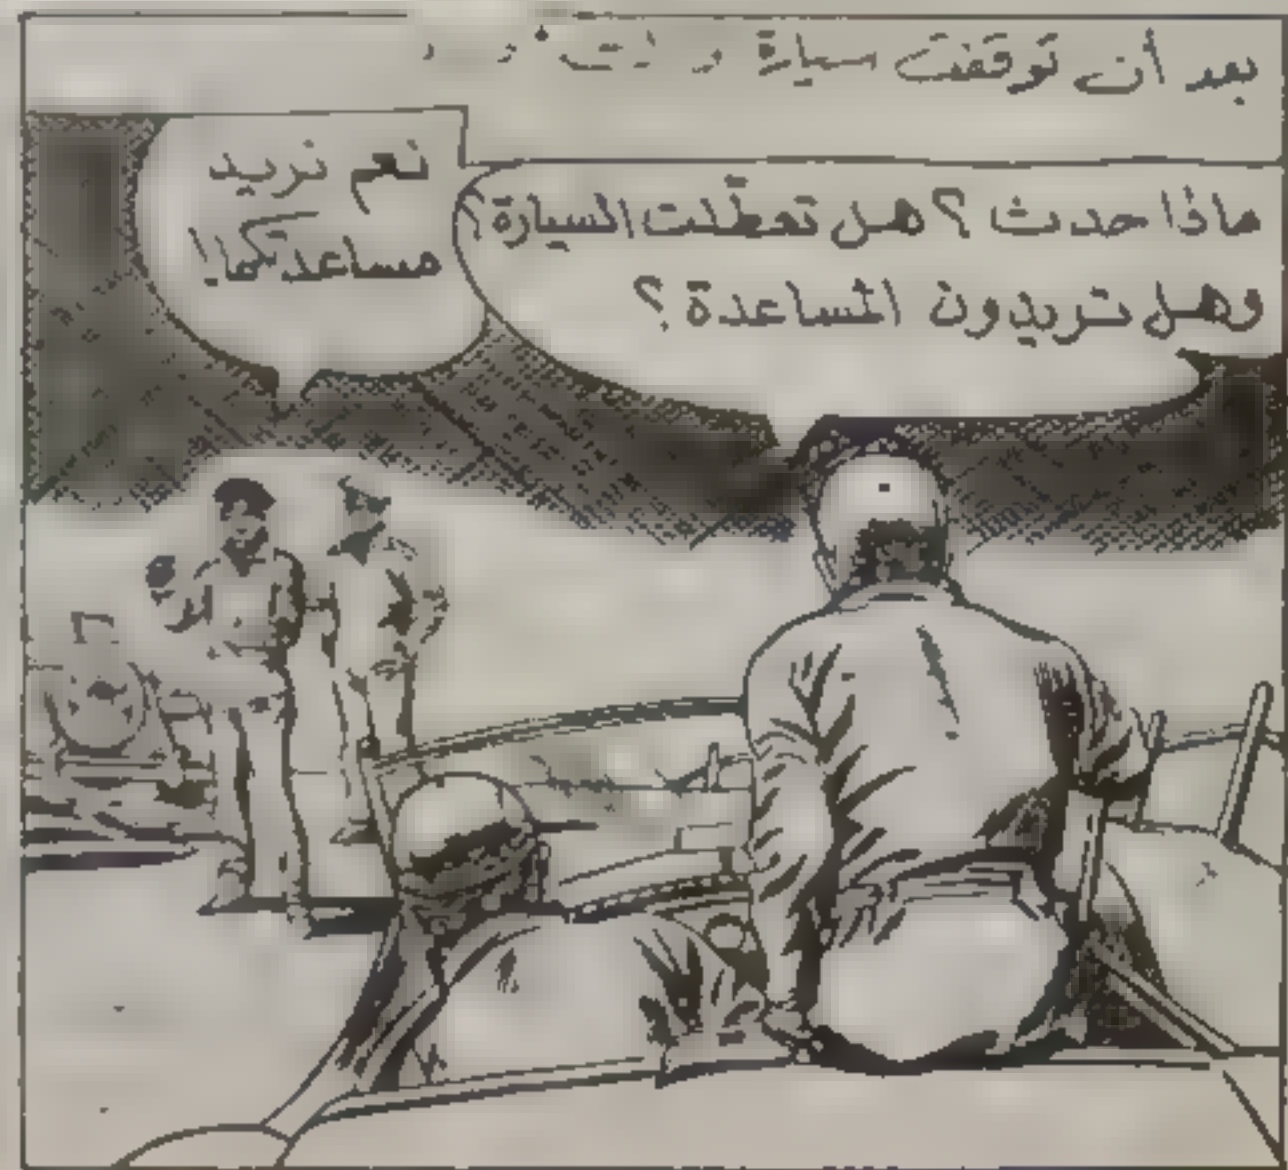 بعد أن توقفت سيارة
ماذا حدث ؟ هل تعطّلت السيارة ؟
وهل تريدون المساعدة ؟
نعم نريد
مساعدتكما !